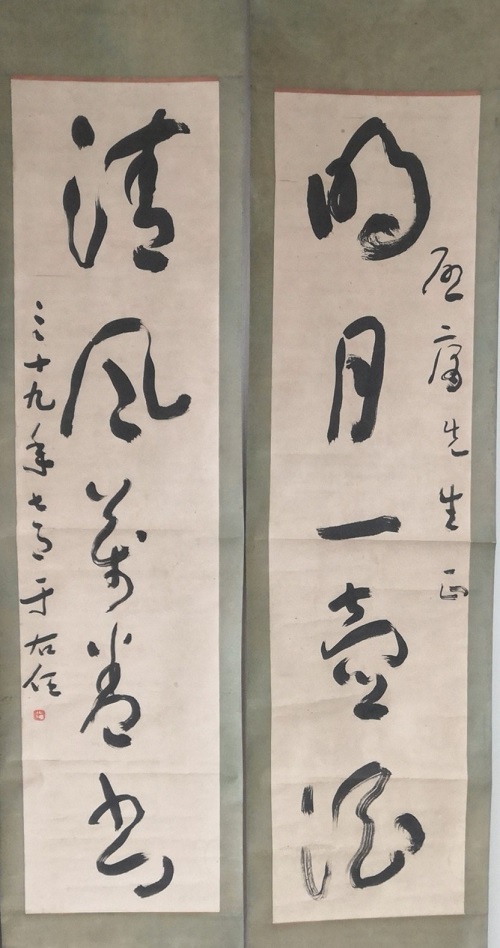 明月一壺酒
先生正
清風萬卷書
三十九年七月 于右任